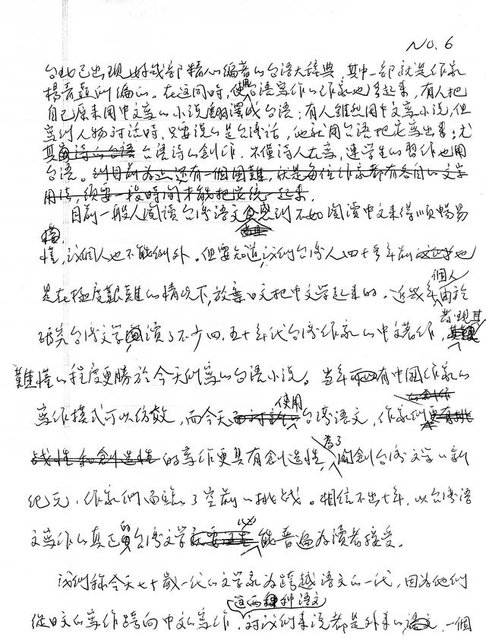 No. 6
台北已出現好幾部精心編著的台語大辭典,其中一部就是作家
楊青矗所編的。在這同時,使用台語寫作的作家也多起來,有人把
自己原來用中文寫的小說翻譯成台語;有人雖然用中文寫小說,但
寫到人物對話時,只要說的是台灣話,他就用台語把它寫出來;尤
其台語詩的創作,不僅詩人在寫,連學生的習作也用
台語。到目前為止還有一個困難,就是每位作家都有各自的文字
用法,須要一段時間才能把它統一起來。
目前一般人閱讀台灣語文會感到不如閱讀中文來得順暢易
懂,我個人也不能例外。但要知道,我們台灣人四十多年前也
是在極度艱難的情況下,放棄日文把中文學起來的。近幾年個人由於
研究台灣文學讀了不少四、五十年代台灣作家的中文著作,發現其
難懂的程度更勝於今天所寫的台語小說。當年有中國作家的
寫作模式可以仿效,而今天使用台灣語文,作家們
的寫作更具有創造性,為了開創台灣文學的新
紀元,作家們面臨了空前的挑戰。相信不出十年,以台灣語
文寫作的真正台灣文學必能普遍為讀者接受。
我們稱今天七十歲一代的文學家為跨越語文的一代,因為他們
從日文的寫作跨向中文的寫作,這兩種語文對我們來說都是外來的語文,一個